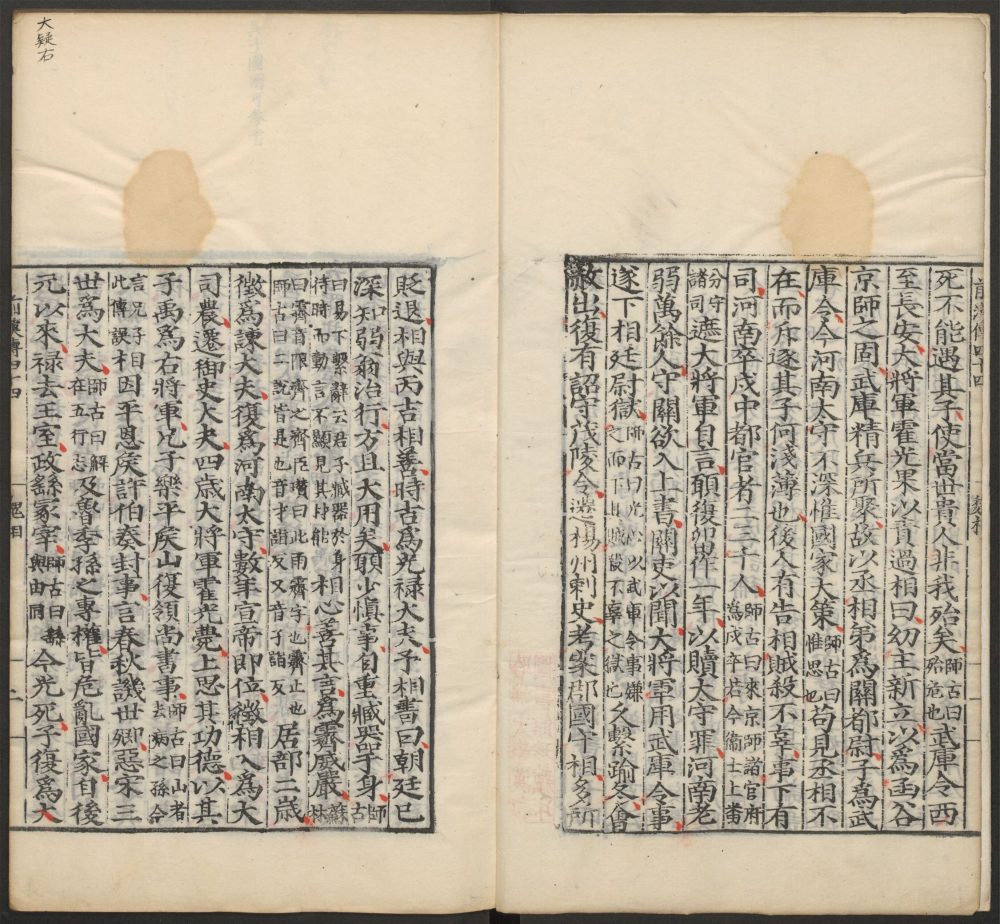 死不能遇其子使當世貴人非我殆矣師古曰殆危也武庫令西
至長安大將軍霍光果以責過相曰幼主新立以爲函谷
京師之固武庫精兵所聚故以丞相弟爲關都尉子爲武
庫令今河南太守不深惟國家大策師古曰惟思也苟見丞相不
在而斥逐其子何淺薄也後人有告相賊殺不辜事下有
司河南卒戍中都官者二三千人師古曰來京師諸官府爲戍卒若今衞士上番
分守諸司遮大將軍自言願復留作一年以贖太守罪河南老
弱萬餘人守關欲入上書關吏以聞大將軍用武庫令事
遂下相廷尉獄師古曰光心以武庫令事嫌之而下以賊殺不辜之獄也久繫踰冬會
赦出復有詔守茂陵令遷楊州刺史考案郡國守相多所
前漢傳四十四
貶退相與丙古相善時古爲光禄大夫予相書曰朝廷已
深知弱翁治行方且大用矣願少愼事自重臧器于身師古
曰易下繫辭云君子臧器於身待時而動言不顯見其材能相心善其言爲霽威嚴蘇林
曰霽音限齊之齊臣瓚曰此雨霽字也霽止也師古曰二說皆是也音才詣反又音子詣反居部二歳
徵爲諫大夫復爲河南太守數年宣帝即位徵相入爲大
司農遷御史大夫四歳大將軍霍光薨上思其功德以其
子禹爲右將軍兄子樂平侯山復領尚書事師古曰山者去病之孫今
言兄子此傳誤相因平恩侯許伯奏封事言春秋譏世卿惡宋三
世爲大夫師古曰解在五行志及魯季孫之專權皆危亂國家自後
元以來禄去王室政繇冢宰師古曰繇與由同今光死子復爲大
前漢傳四十四
大疑右